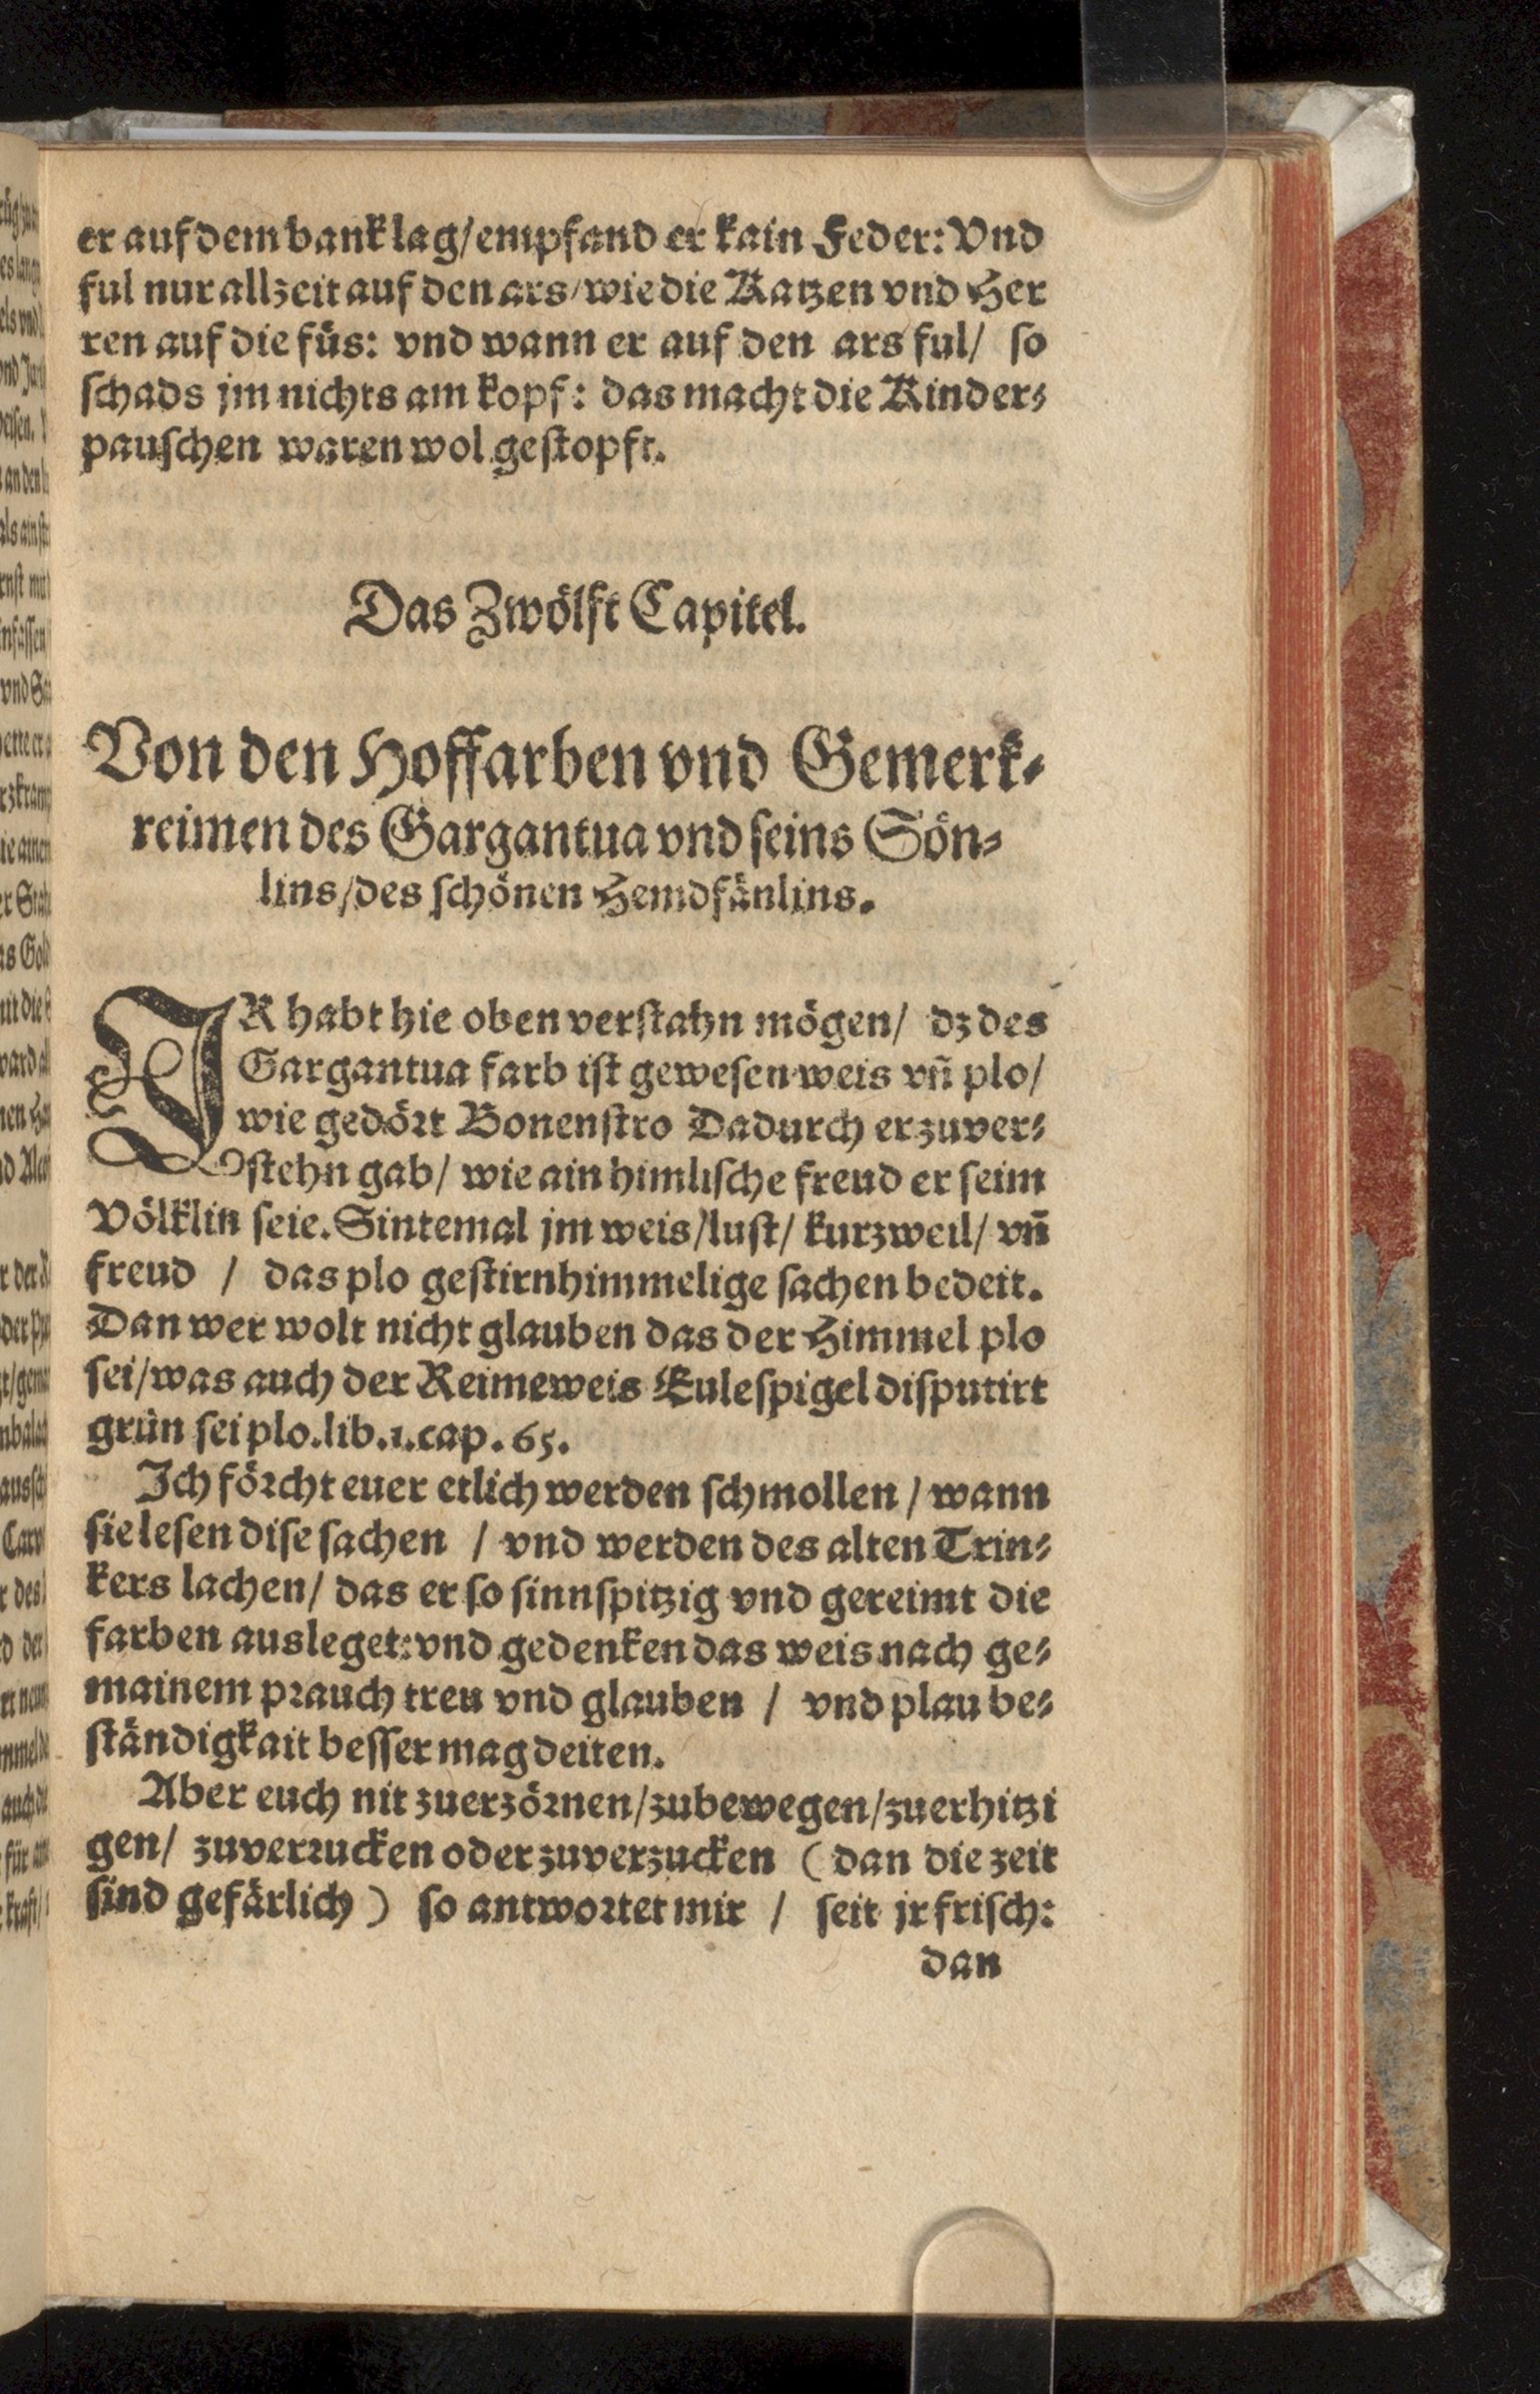 er auf dem bank lag/ empfand er kain Feder: Vnd
ful nur allzeit auf den ars/ wie die Katzen vnd Her
ren auf die füs: vnd wann er auf den ars ful/ so
schads jm nichts am kopf: das macht die Kinder⸗
pauschen waren wol gestopft.
Das Zwölft Capitel.
Von den Hoffarben vnd Gemerk⸗
reimen des Gargantua vnd seins Sön⸗
lins/ des schönen Hemdfänlins.
IR habt hie oben verstahn mögen/ dz des
Gargantua farb ist gewesen weis vñ plo/
wie gedört Bonenstro Dadurch er zuver⸗
stehn gab/ wie ain himlische freud er seim
Völklin seie. Sintemal jm weis/ lust/ kurzweil/ vñ
freud / das plo gestirnhimmelige sachen bedeit.
Dan wer wolt nicht glauben das der Himmel plo
sei/ was auch der Reimeweis Eulespigel disputirt
grün sei plo. lib. 1. cap. 65.
Ich förcht euer etlich werden schmollen / wann
sie lesen dise sachen / vnd werden des alten Trin⸗
kers lachen/ das er so sinnspitzig vnd gereimt die
farben ausleget: vnd gedenken das weis nach ge⸗
mainem prauch treu vnd glauben / vnd plau be⸗
ständigkait besser mag deiten.
Aber euch nit zuerzörnen/ zubewegen/ zuerhitzi
gen/ zuverrucken oder zuverzucken (dan die zeit
sind gefärlich) so antwortet mir / seit jr frisch:
dan